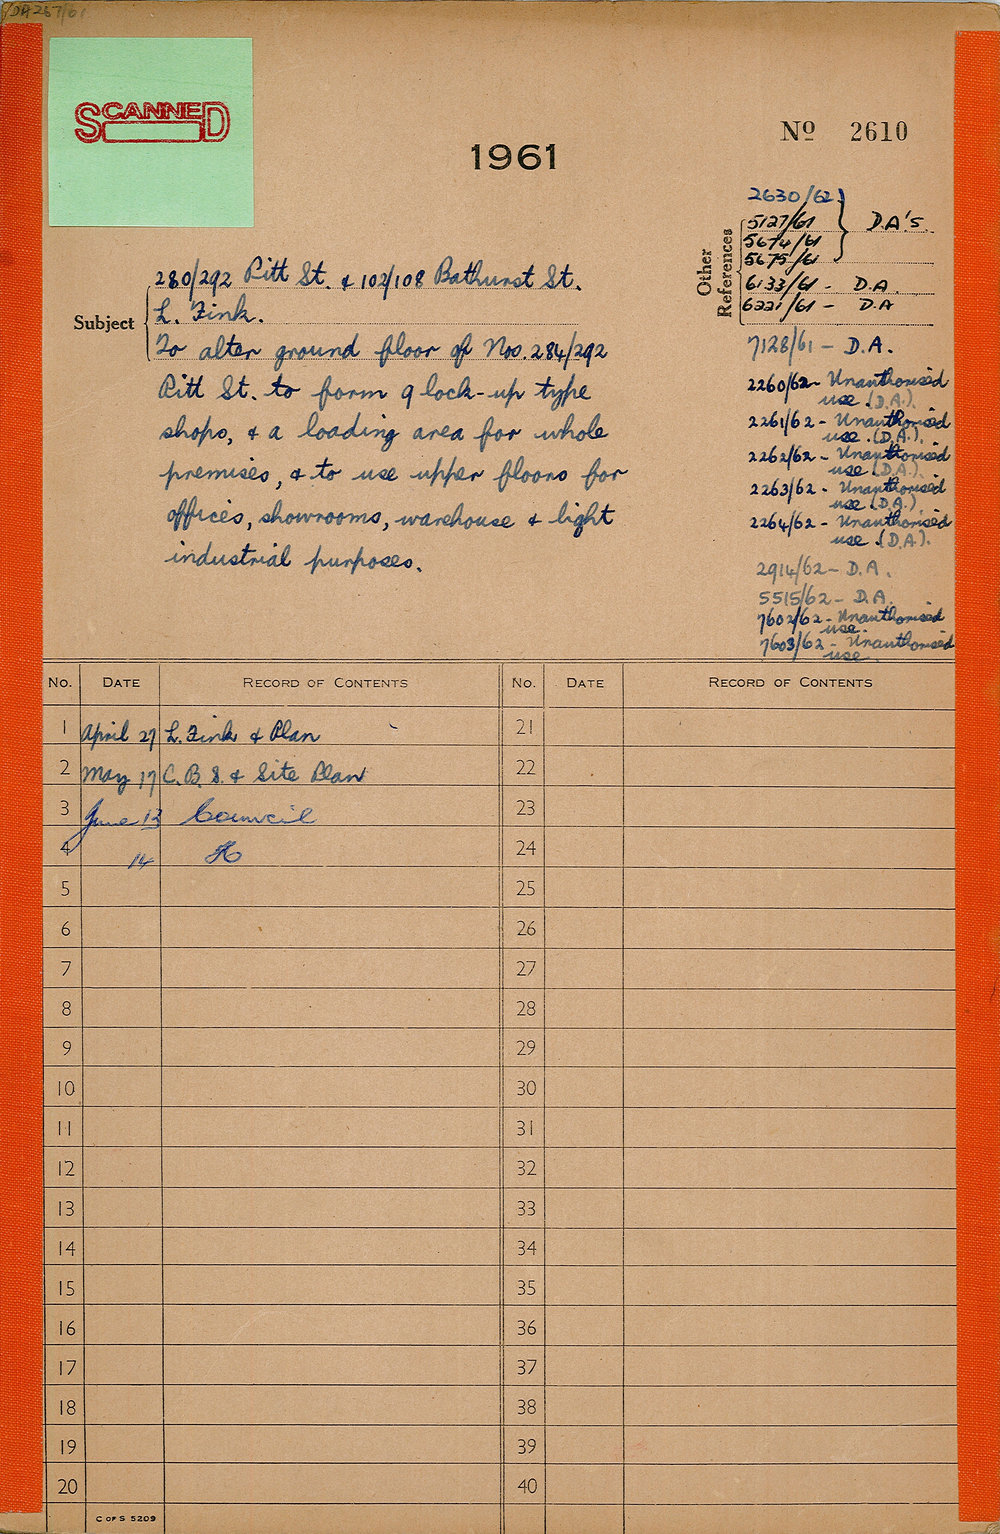 DA 287/61
SCANNED
1961
No 2610
Other References
2630/62
5127/61
5674/61
5675/61
D.A's.
6133/61 - D.A.
6221/61 - D.A
7128/61 - D.A.
2260/62 - Unauthorised
use (D.A.).
2261/62 - Unauthorised
use. (D.A.).
2262/62 - Unauthorised
use (D.A.).
2263/62 - Unauthorised
use (D.A.).
2264/62 - Unauthorised
use. (D.A.).
2914/62 - D.A.
5515/62 - D.A.
7602/62 - Unauthorised
use.
7603/62 - Unauthorised
use.
Subject
280/292 Pitt St. & 102/108 Bathurst St.
L. Fink.
To alter ground floor of Nos. 284/292
Pitt St. to form 9 lock-up type
shops, & a loading area for whole
premises, & to use upper floors for
offices, showrooms, warehouse & light
industrial purposes.
No. DATE RECORD OF CONTENTS No. DATE RECORD OF CONTENTS
1 April 27 L. Fink & Plan 21
2 May 17 C.B.S. & Site Plan 22
3 June 13 Council 23
4 14 24
5 25
6 26
7 27
8 28
9 29
10 30
11 31
12 32
13 33
14 34
15 35
16 36
17 37
18 38
19 39
20 40
C OF S 5209